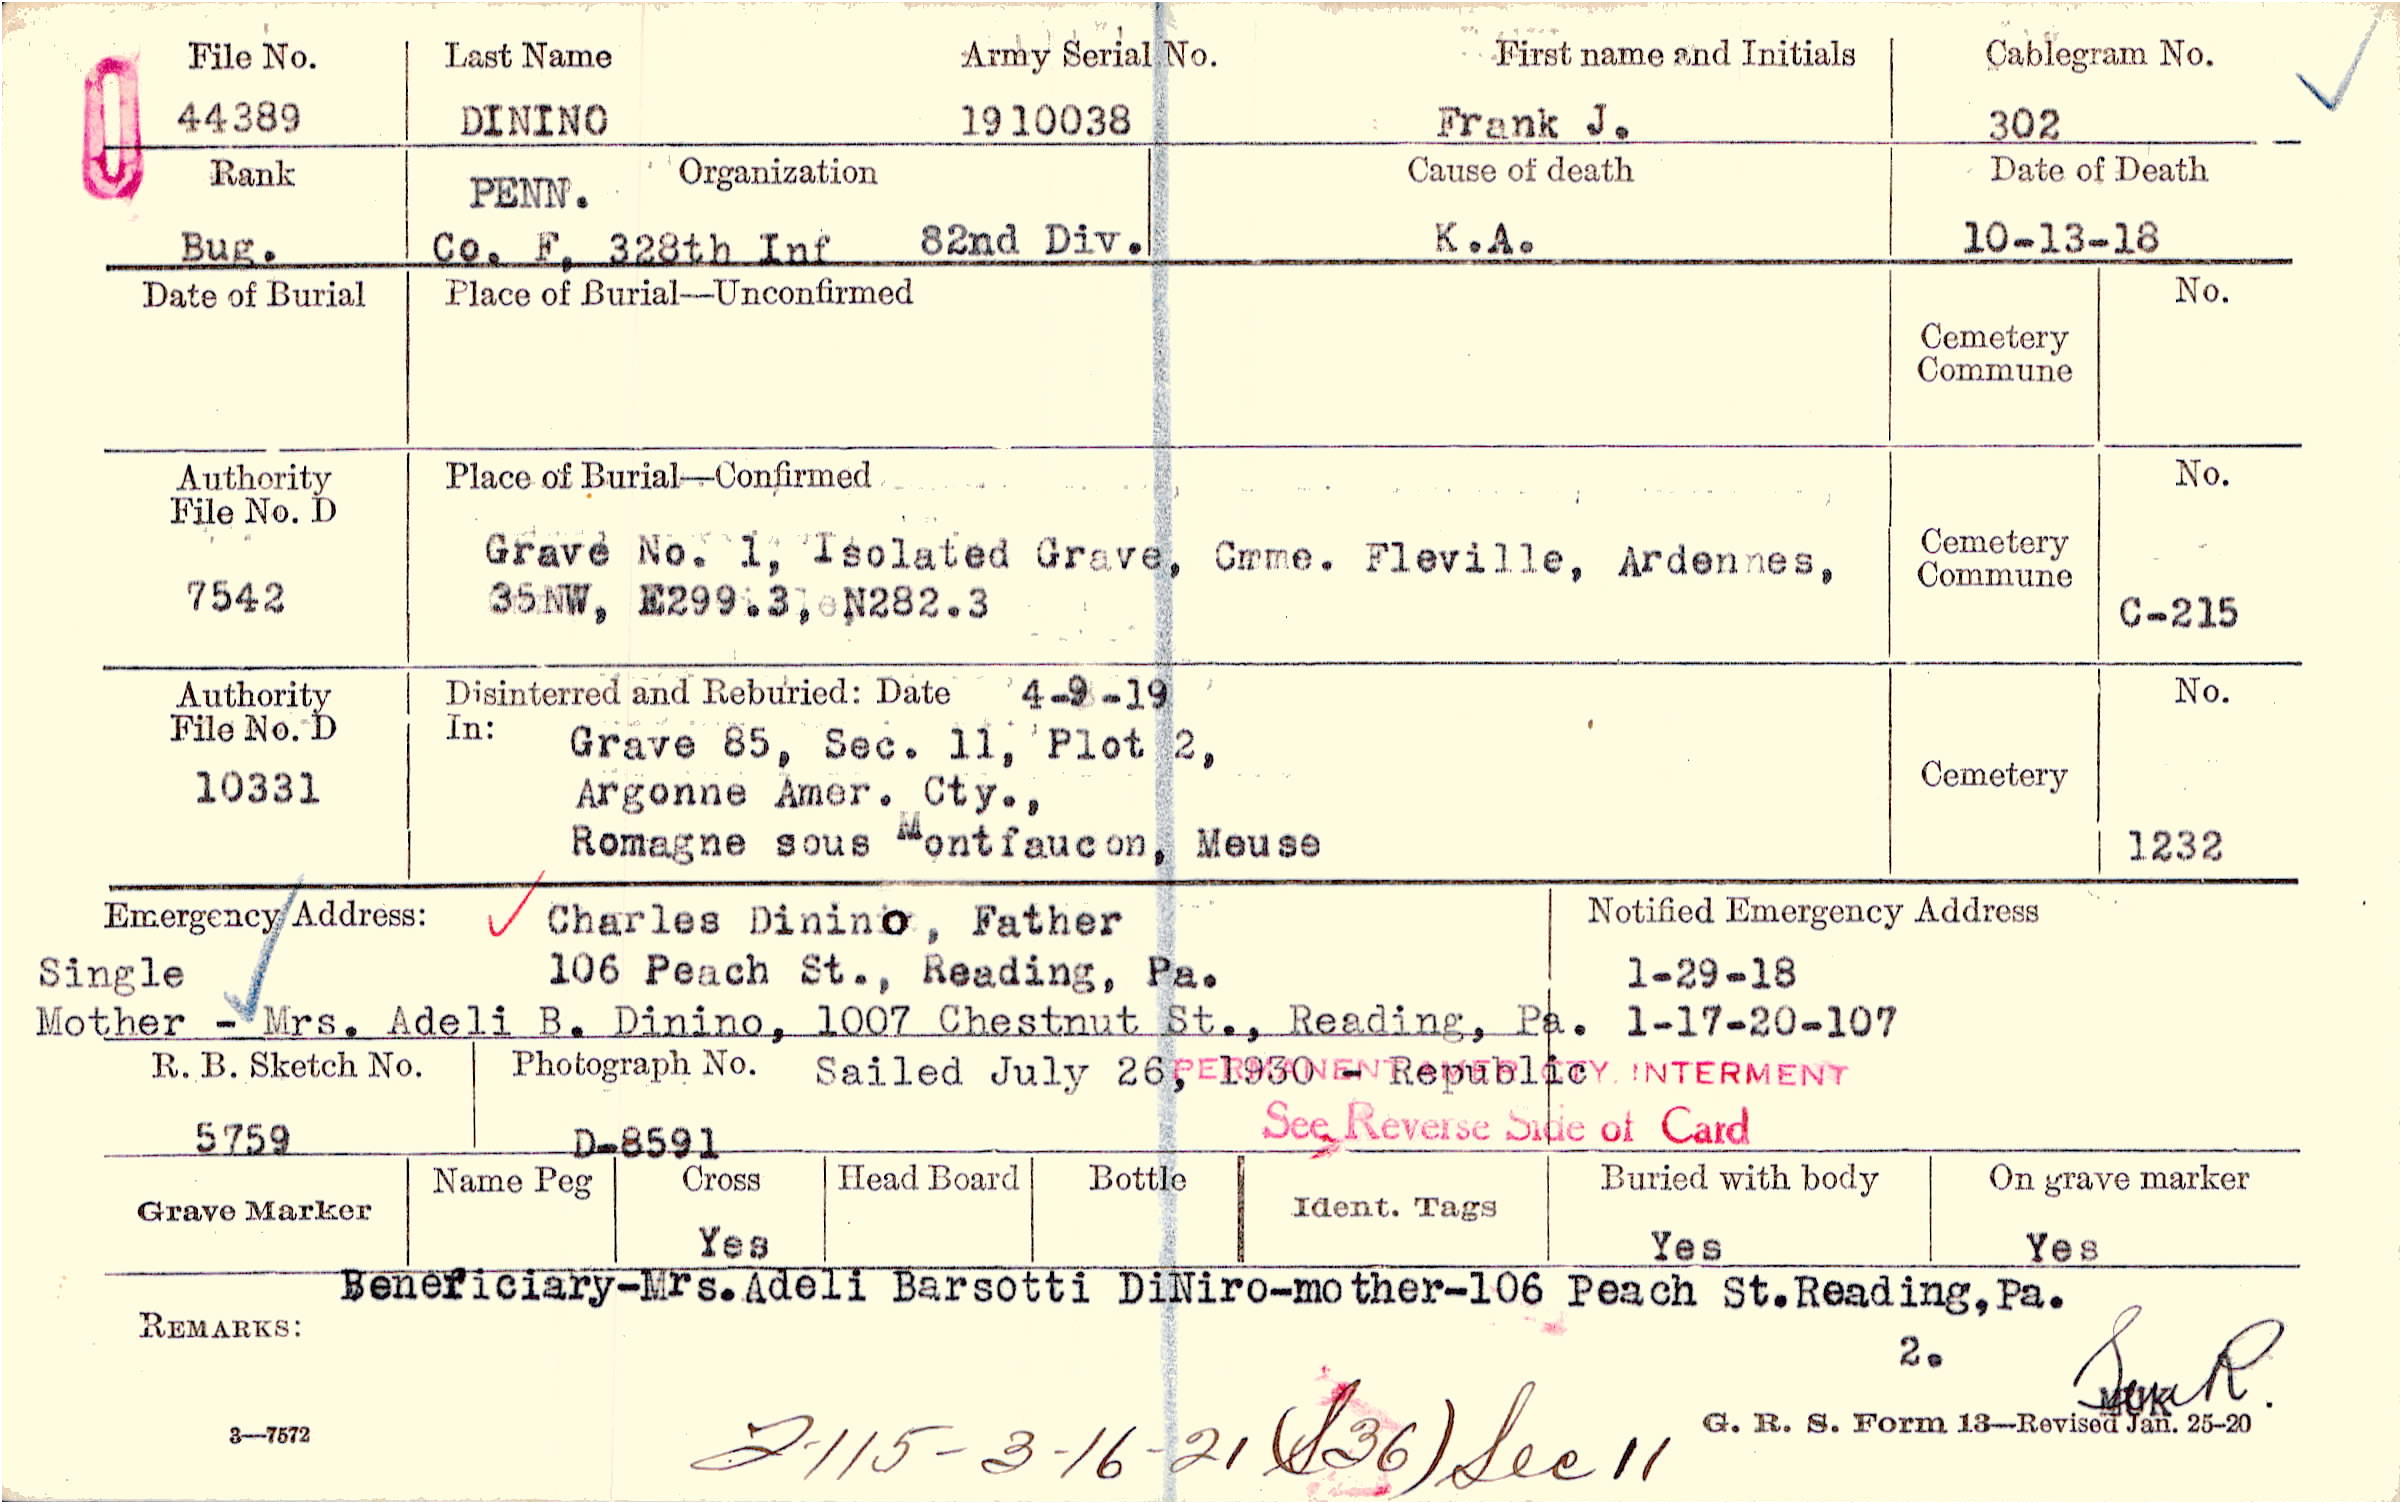 File No. Last Name Army Serial No. First name and Initials Cablegram No.
44389 DININO 1910038 Frank J. 302
Rank Organization Cause of death Date of Death
PENN.
Bug. Co. F, 328th Inf 82nd Div. K.A. 10-13-18
Date of Burial Place of Burial—Unconfirmed No.
Cemetery
Commune
Authority Place of Burial—Confirmed No.
File No. D
Grave No. 1, Isolated Grave, Cmme. Fleville, Ardennes, Cemetery
7542 35NW, E299.3, N282.3 Commune
C-215
Authority Disinterred and Reburied: Date 4-9-19 No.
File No. D In: Grave 85, Sec. 11, Plot 2,
10331 Argonne Amer. Cty., Cemetery
Romagne sous Montfaucon, Meuse 1232
Emergency Address: Charles Dinino, Father Notified Emergency Address
Single 106 Peach St., Reading, Pa. 1-29-18
Mother - Mrs. Adeli B. Dinino, 1007 Chestnut St., Reading, Pa. 1-17-20-107
R. B. Sketch No. Photograph No. Sailed July 26, 1930 - Republic
PERMANENT AMER. CTY. INTERMENT
See Reverse Side of Card
5759 D-8591
Grave Marker Name Peg Cross Head Board Bottle Ident. Tags Buried with body On grave marker
Yes Yes Yes
Beneficiary-Mrs.Adeli Barsotti DiNiro-mother-106 Peach St.Reading,Pa.
REMARKS:
2.
MUK
3—7572 G. R. S. Form 13—Revised Jan. 25-20
2-115-3-16-21 (S36) Sec 11